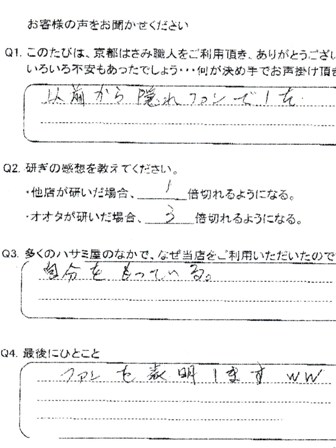 お客様の声をお聞かせください
Q1. このたびは、京都はさみ職人をご利用頂き、ありがとうござい
いろいろ不安もあったでしょう・・・何が決め手でお声掛け頂き
以前から隠れファンでした
Q2. 研ぎの感想を教えてください。
・他店が研いだ場合、 1 倍切れるようになる。
・オオタが研いだ場合、 3 倍切れるようになる。
Q3. 多くのハサミ屋のなかで、なぜ当店をご利用いただいたので
自分をもっている。
Q4. 最後にひとこと
ファンを表明します ww